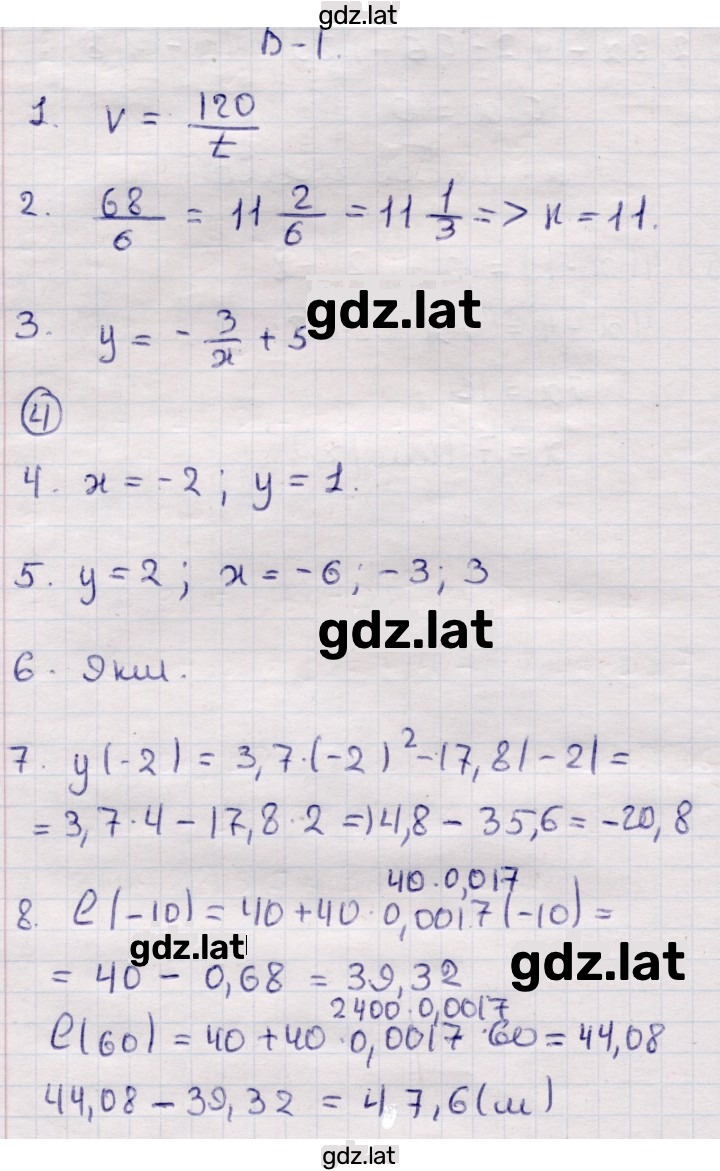 gdz.lat
В-1.
1. v = 120/t
2. 68/6 = 11 2/6 = 11 1/3 => x = 11.
gdz.lat
3. y = - 3/x + 5
4
4. x = -2; y = 1.
5. y = 2; x = -6; -3; 3
gdz.lat
6. 9 км.
7. y(-2) = 3,7·(-2)² - 17,8|-2| =
= 3,7·4 - 17,8·2 = 14,8 - 35,6 = -20,8
40·0,017
8. l(-10) = 40 + 40·0,0017(-10) =
gdz.lat
gdz.lat
= 40 - 0,68 = 39,32
2400·0,0017
l(60) = 40 + 40·0,0017·60 = 44,08
44,08 - 39,32 = 4,7,6 (м)
gdz.lat